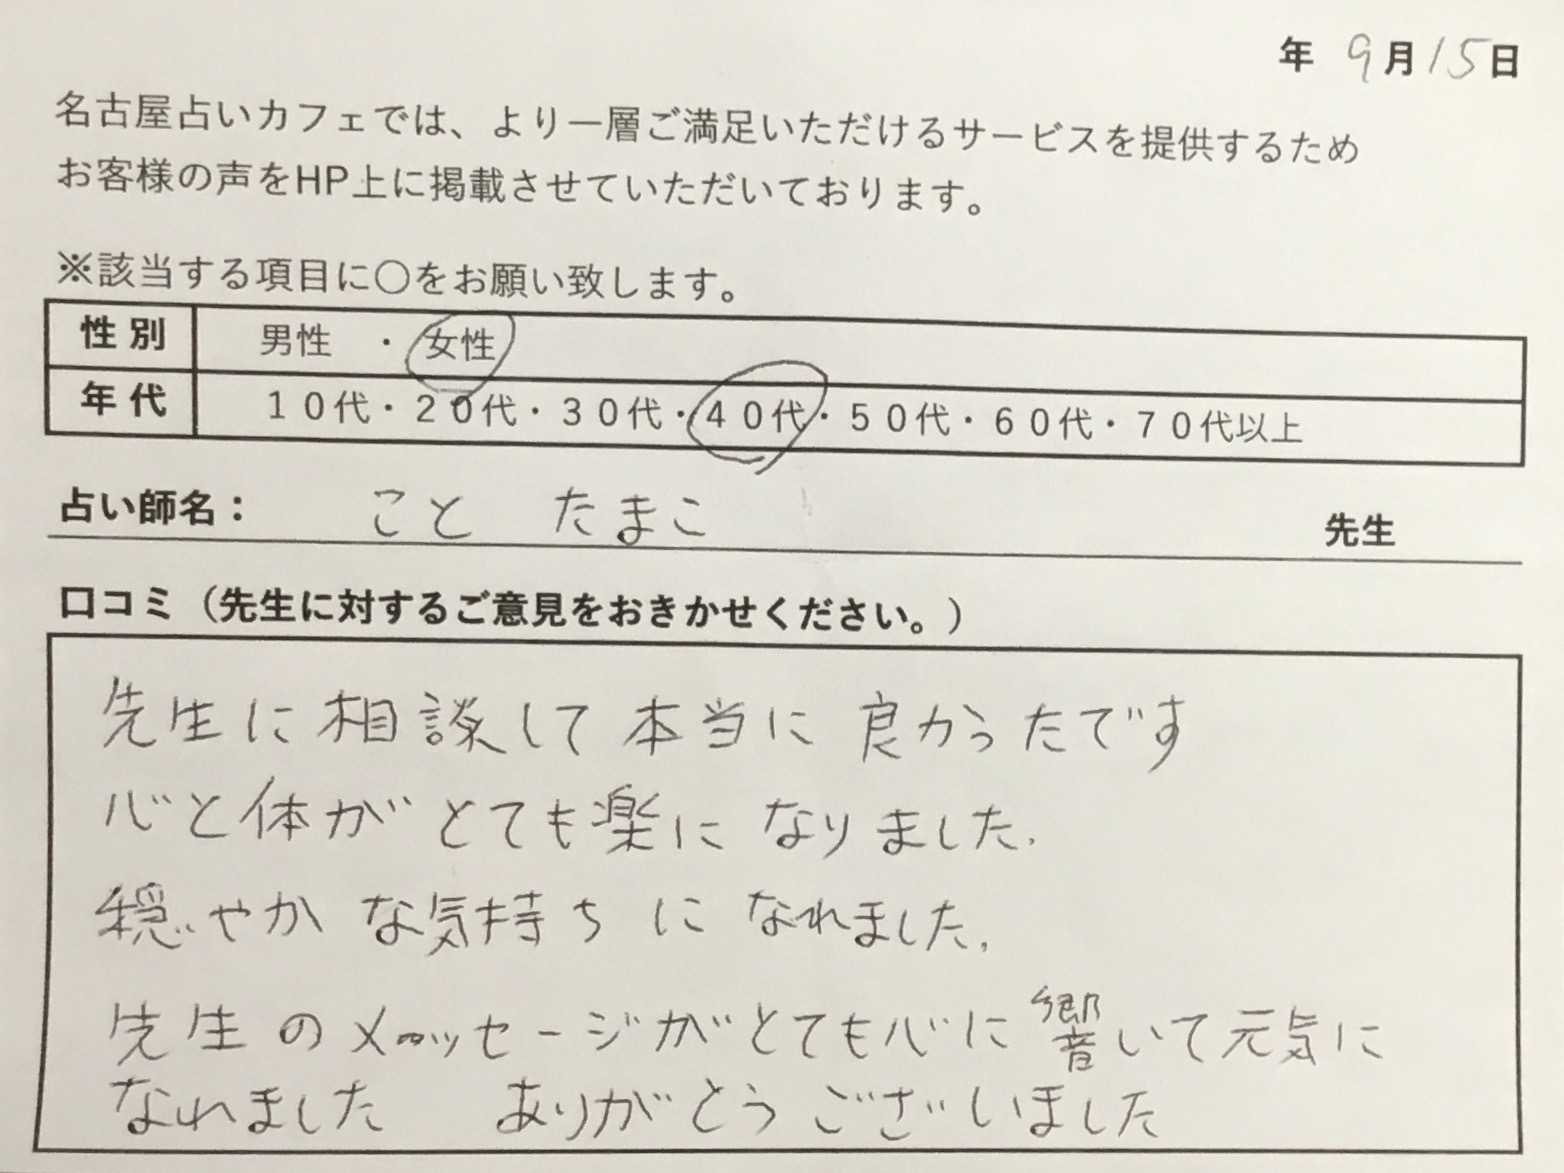 年 9月15日
名古屋占いカフェでは、より一層ご満足いただけるサービスを提供するため
お客様の声をHP上に掲載させていただいております。
※該当する項目に〇をお願い致します。
性別 男性 ・ 女性
年代 10代・20代・30代・40代・50代・60代・70代以上
占い師名： こと たまこ 先生
口コミ（先生に対するご意見をおきかせください。）
先生に相談して本当に良かったです
心と体がとても楽になりました.
穏やかな気持ちになれました.
先生のメッセージがとても心に響いて元気に
なれました ありがとうございました